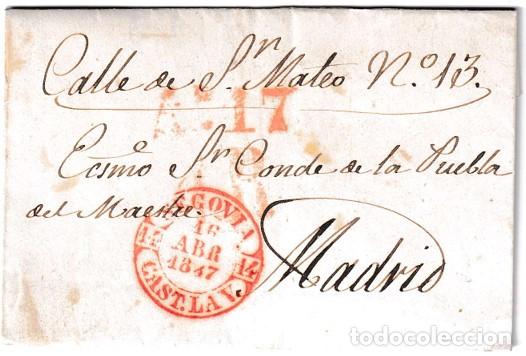 Calle de Sn. Mateo N.o 13.
17
Ecsmo Sr Conde de la Puebla
del Maestre.
SEGOVIA
16
ABR
1847
14 14
CAST. LA V.
Madrid
todocoleccion.net